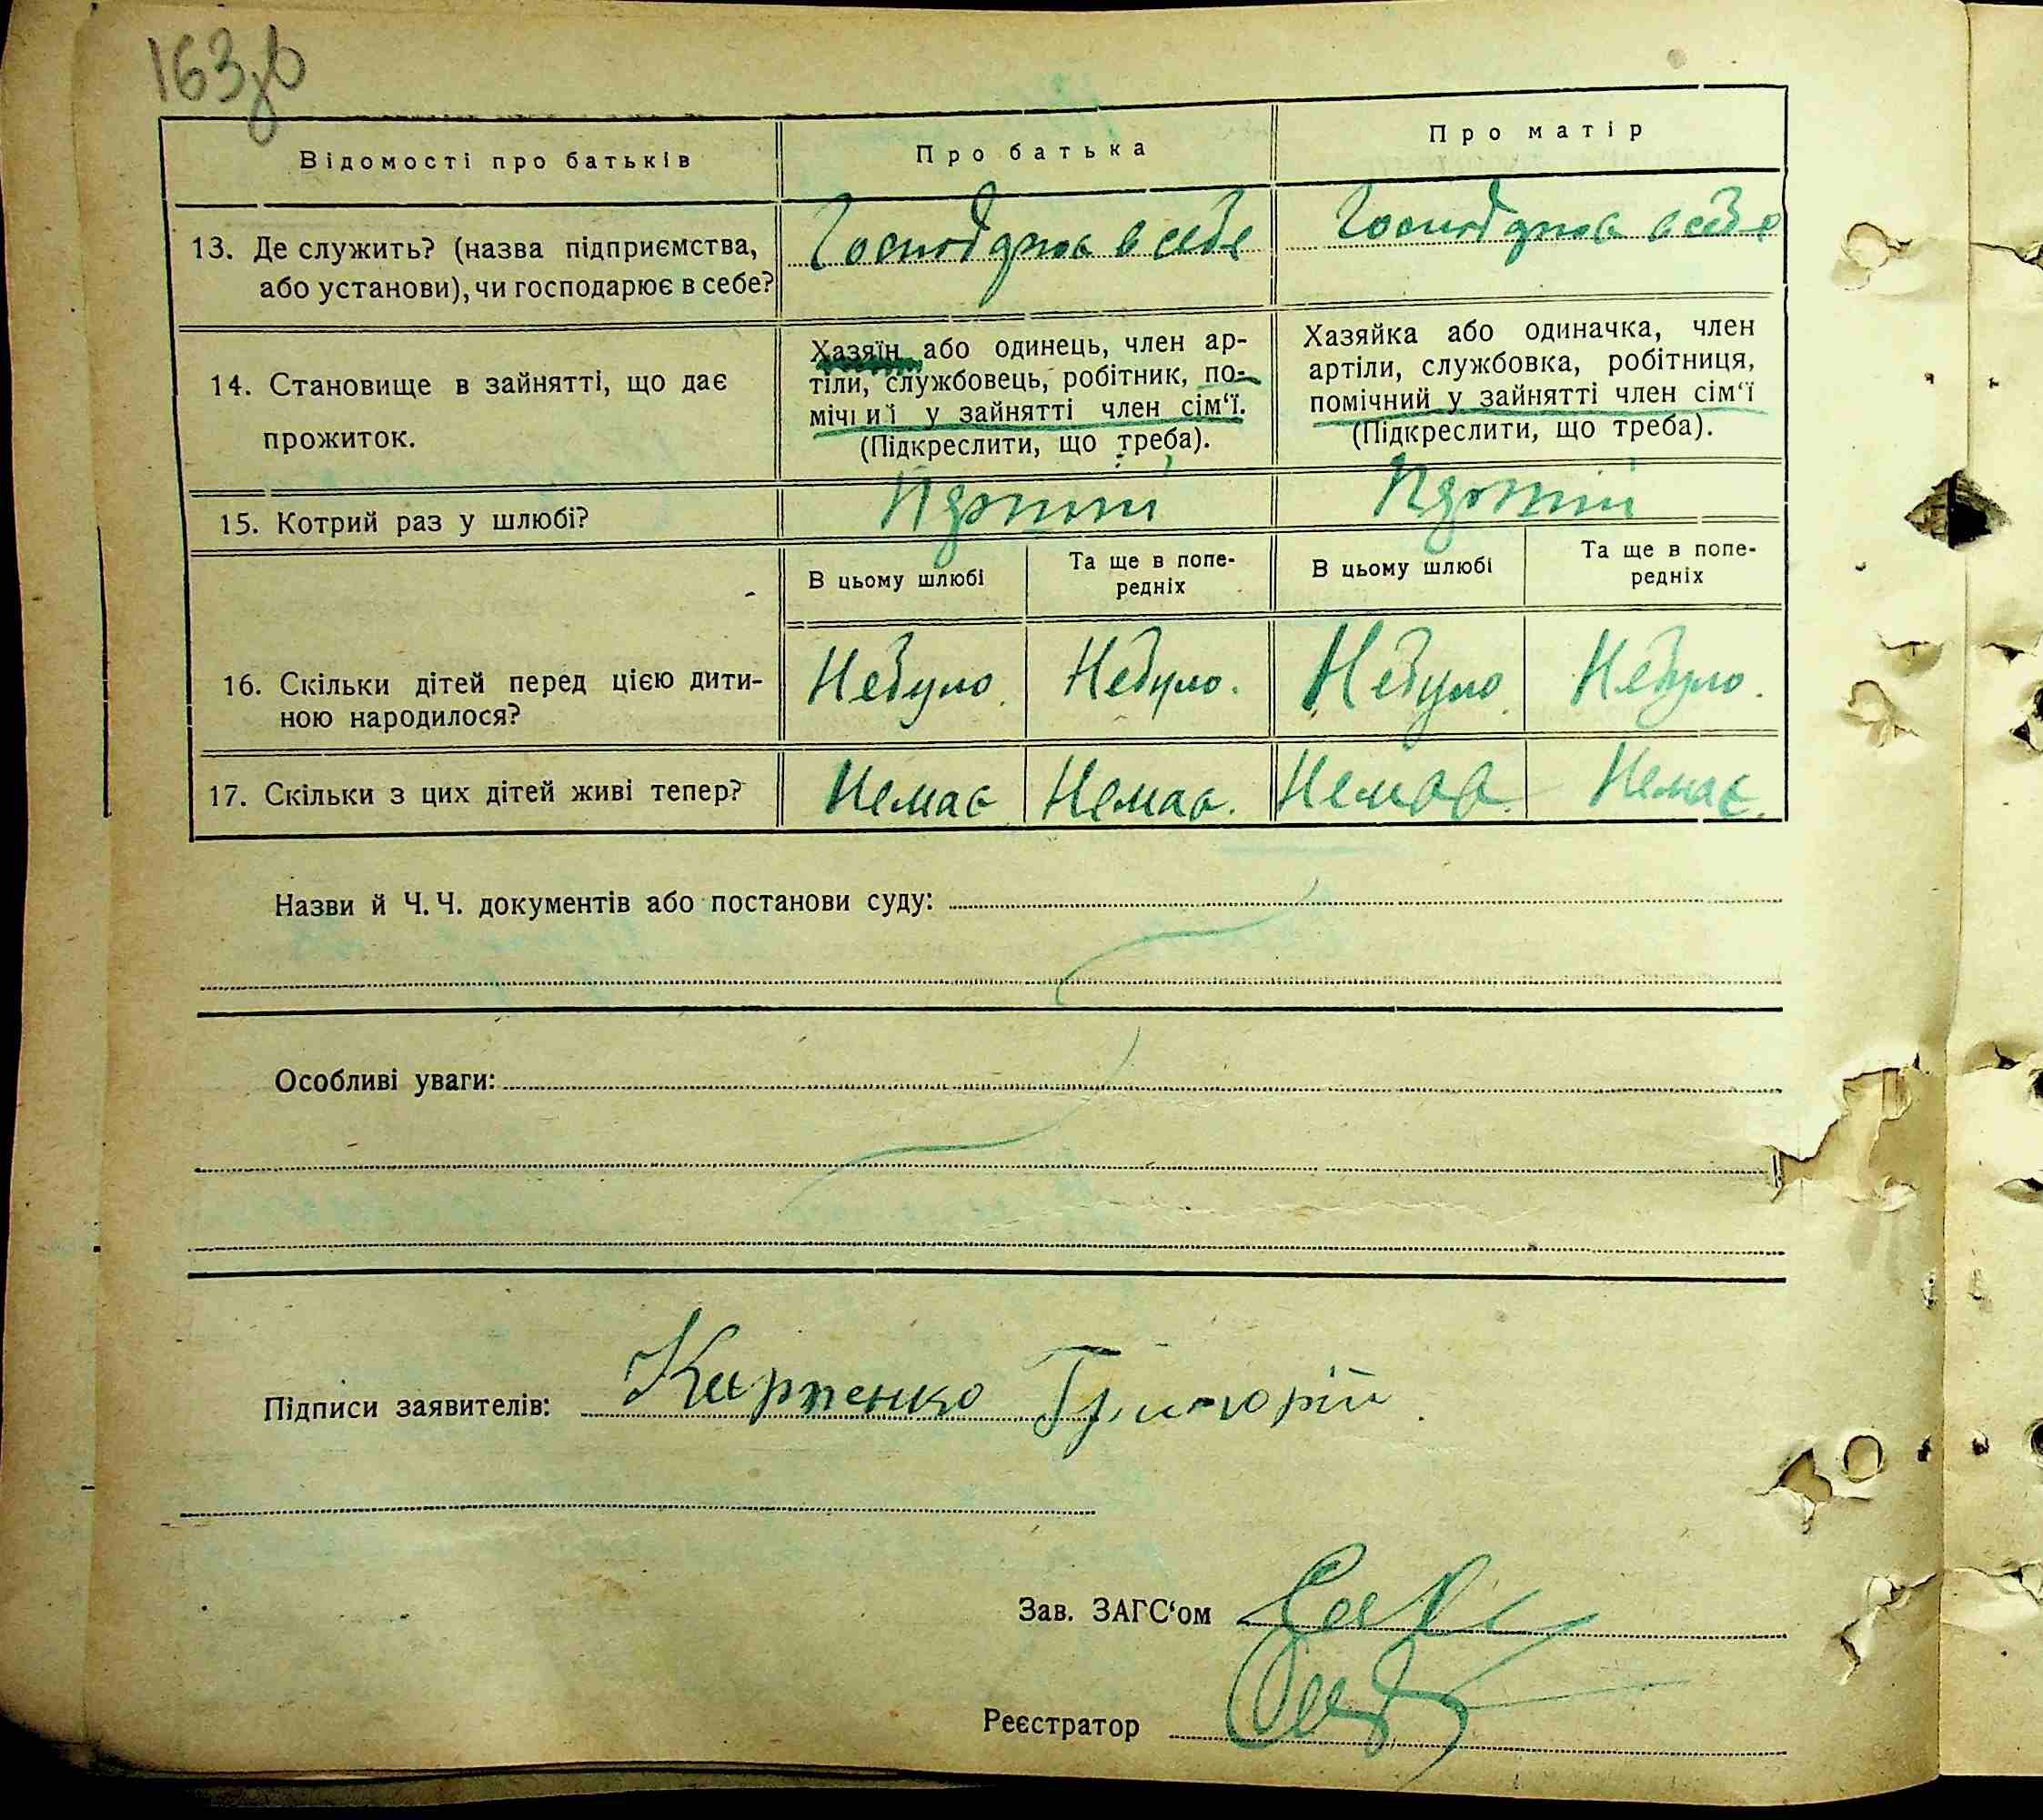 163зв
Відомості про батьків
Про батька
Про матір
13. Де служить? (назва підприємства,
або установи), чи господарює в себе?
Господарює в себе
Господарює в себе
14. Становище в зайнятті, що дає
прожиток.
Хазяїн або одинець, член ар-
тіли, службовець, робітник, по-
мічний у зайнятті член сім‘ї.
(Підкреслити, що треба).
Хазяйка або одиначка, член
артіли, службовка, робітниця,
помічний у зайнятті член сім‘ї
(Підкреслити, що треба).
15. Котрий раз у шлюбі?
В цьому шлюбі
Та ще в попе-
редніх
В цьому шлюбі
Та ще в попе-
редніх
16. Скільки дітей перед цією дити-
ною народилося?
Небуло
Небуло.
Небуло.
Небуло.
17. Скільки з цих дітей живі тепер?
Немає
Немає.
Немає
Немає.
Назви й Ч. Ч. документів або постанови суду:
Особливі уваги:
Підписи заявителів: Карпенко Григорій
Зав. ЗАГС‘ом
Реєстратор